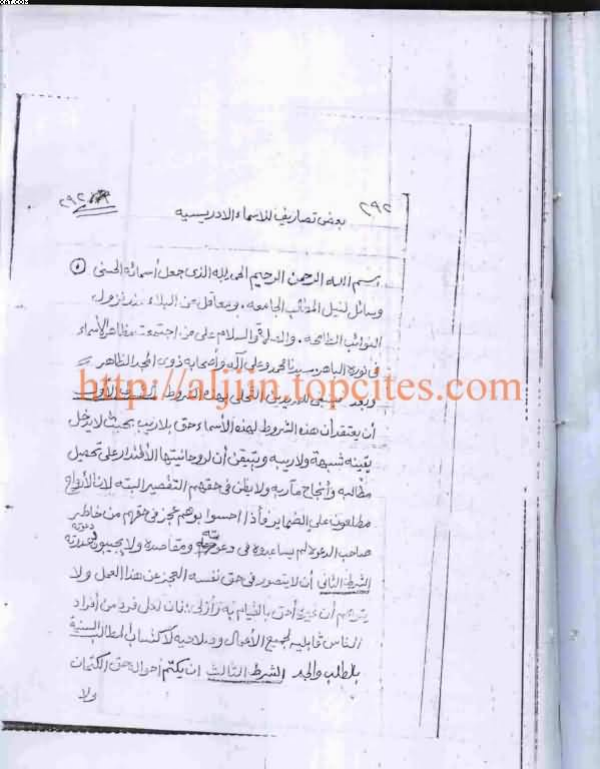 ٢٩٢
بعض تصاريف للاسماء الادريسيه
٢٩٢
بسم الله الرحمن الرحيم الحمد لله الذى جعل أسمائه الحسنى
وسائل لنيل المطالب الجامعه . ومعاقل من البلاء عند نزول
النوائب الطامحة . والصلاة والسلام على من اجتمعت مظاهر الأسماء
فى نوره الباهر سيدنا محمد وعلى آله وأصحابه ذوى المجد الظاهر
http://aljjin.topcites.com
وبعد التحلى بهذه الشروط الشرط الأول
أن يعتقد أن هذه الشروط لهذه الأسماء حق بلا ريب بحيث لا يدخل
يقينه شبهة ولا ريبه ويتيقن أن لروحانيتها الأقتدار على تحصيل
مطالبه وأنجاح مآربه ولا يظن فى حقهم التقصير البته لان الأرواح
مطلعون على الضماير فأذا احسوا بوهم عجز فى حقهم من خاطر
صاحب الدعوة لم يساعدوه فى ومقاصده ولا يجيبون دعوته
الشرط الثانى أن لا يتصور فى حق نفسه العجز عن هذا العمل ولا
يتوهم أن غيره أحق بالقيام به وأولى فان لكل فرد من أفراد
الناس قابليه لجميع الأعمال وصلاحيه لاكتساب المطالب السنية
بالطلب والجد الشرط الثالث ان يكتم أحواله حق الكتمان
ولا